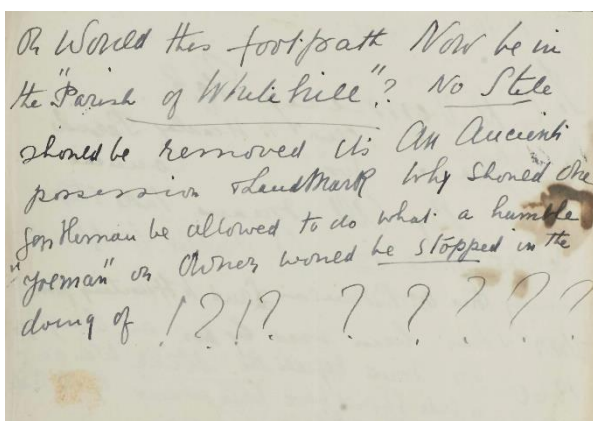 Or Would this footpath Now be in
the "Parish of Whitehill"? No Stile
should be removed its An Ancient
possession & LandMark Why should one
gentleman be allowed to do what a humble
"yoeman" or Owner would be stopped in the
doing of !?!? ? ? ? ? ?